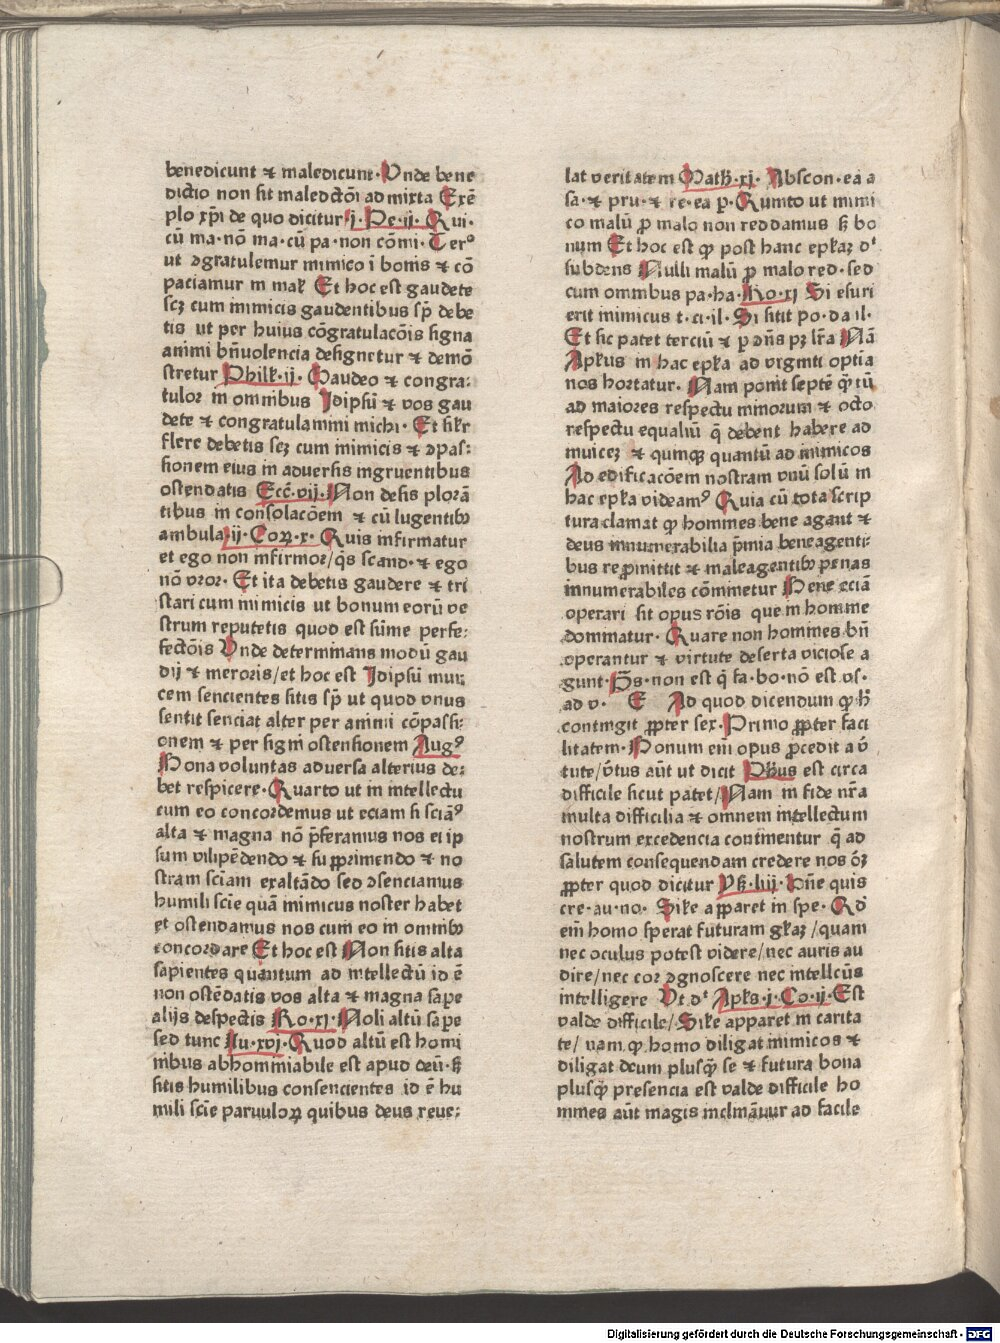 benedicunt ⁊ maledicunt· Unde bene
dictio non sit maledctōi admixta Exē
plo xp̄i de quo dicitur ·j·Pe·ij·Qui·
cū ma·nō ma·cū pa·non cōmi·Ter⁹
ut ɔgratulemur inimico ī bonis ⁊ cō
paciamur in mał Et hoc est gaudete
scꝫ cum inimicis gaudentibus sp̄ debe
tis ut per huius cōgratulacōis signa
animi bn̄uolencia designetur ⁊ demō
stretur Philł·ij· Gaudeo ⁊ congra:
tulor in omnibus Idipsū ⁊ vos gau
dete ⁊ congratulamini michi· Et silr
flere debetis scꝫ cum inimicis ⁊ ɔpas:
sionem eius in aduersis ingruentibus
ostendatis Eccī·vij·Non desis plorā
tibus in consolacōem ⁊ cū lugentibꝫ
ambula·ij·Coꝝ·x· Quis infirmatur
et ego non infirmor/q̄s scand·⁊ ego
nō vror· Et ita debetis gaudere ⁊ tri
stari cum inimicis ut bonum eorū ve
strum reputetis quod est sūme perfe:
fectōis Unde determinans modū gau
dij ⁊ meroris/et hoc est Idipsū inui
cem sencientes sitis sp̄ ut quod vnus
sentit senciat alter per animi cōpassi:
onem ⁊ per signi ostensionem Aug⁹
Bona voluntas aduersa alterius de:
bet respicere·Quarto ut in intellectu
cum eo concordemus ut eciam si sciā⁹
alta ⁊ magna nō p̄feramus nos ei ip
sum vilipēdendo ⁊ supprimendo ⁊ no
stram sciam exaltādo sed ɔsenciamus
humili scie quā inimicus noster habet
et ostendamus nos cum eo in omnibꝫ
concordare Et hoc est Non sitis alta
sapientes quantum ad intellectū id ē
non ostēdatis vos alta ⁊ magna sape
alijs despectis Ro·xj·Noli altū sape
sed tunc Lu·xvj·Quod altū est homi
nibus abhominabile est apud deū·ß
sitis humilibus consencientes id ē hu
mili scie paruuloꝝ quibus deus reue:
lat veritatem Math·xj· Abscon·ea a
sa·⁊ pru·⁊ re·ea p·Quinto ut inimi
co malū p̱ malo non reddamus ß bo
num Et hoc est ꝙ post hanc epłaꝫ dʳ
subdens Nulli malū p̱ malo red·sed
cum omnibus pa·ha·Ro·xj Si esuri
erit inimicus t·ci·il·Si sitit po·da il·
Et sic patet terciū ⁊ p ɔn̄s pꝫ lr̄a Nā
Apłus in hac epła ad viginti optīa
nos hortatur· Nam ponit septē q̄ tū
ad maiores respectu minorum ⁊ octo
respectu equaliū q̄ debent habere ad
inuiceꝫ ⁊ quinqꝫ quantū ad inimicos
Ad edificacōem nostram vnū solū in
hac epła videam⁹ Quia cū tota scrip
tura clamat ꝙ homines bene agant ⁊
deus innumerabilia p̄mia beneagenti:
bus repromittit ⁊ maleagentibꝫ penas
innumerabiles cōminetur Bene eciā
operari sit opus rōis que in homine
dominatur· Quare non homines bn̄
operantur ⁊ virtute deserta viciose a
gunt·Ps·non est q̄ fa·bo·nō est us·
ad v· E Ad quod dicendum ꝙ h̄
contingit ꝓpter sex·Primo ꝓpter faci
litatem·Bonum eni opus ꝓcedit a v̄
tute/v̄tus aūt ut dicit Phūs est circa
difficile sicut patet/Nam in fide nr̄a
multa difficilia ⁊ omnem intellectum
nostrum excedencia continentur q̄ ad
salutem consequendam credere nos ōꝫ
ꝓpter quod dicitur Yß·liij· Dn̄e quis
cre·au·no· Sile apparet in spe· Qd̄
eni homo sperat futuram głaꝫ/quam
nec oculus potest videre/nec auris au
dire/nec cor ɔgnoscere nec intellcūs
intelligere Ut dʳ Apłs·j·Co·ij·Est
valde difficile/Sile apparet in carita
te/ nam ꝙ homo diligat inimicos ⁊
diligat deum plusq̄ se ⁊ futura bona
plusq̄ presencia est valde difficile ho
mines aūt magis inclinātur ad facile
Digitalisierung gefördert durch die Deutsche Forschungsgemeinschaft - DFG